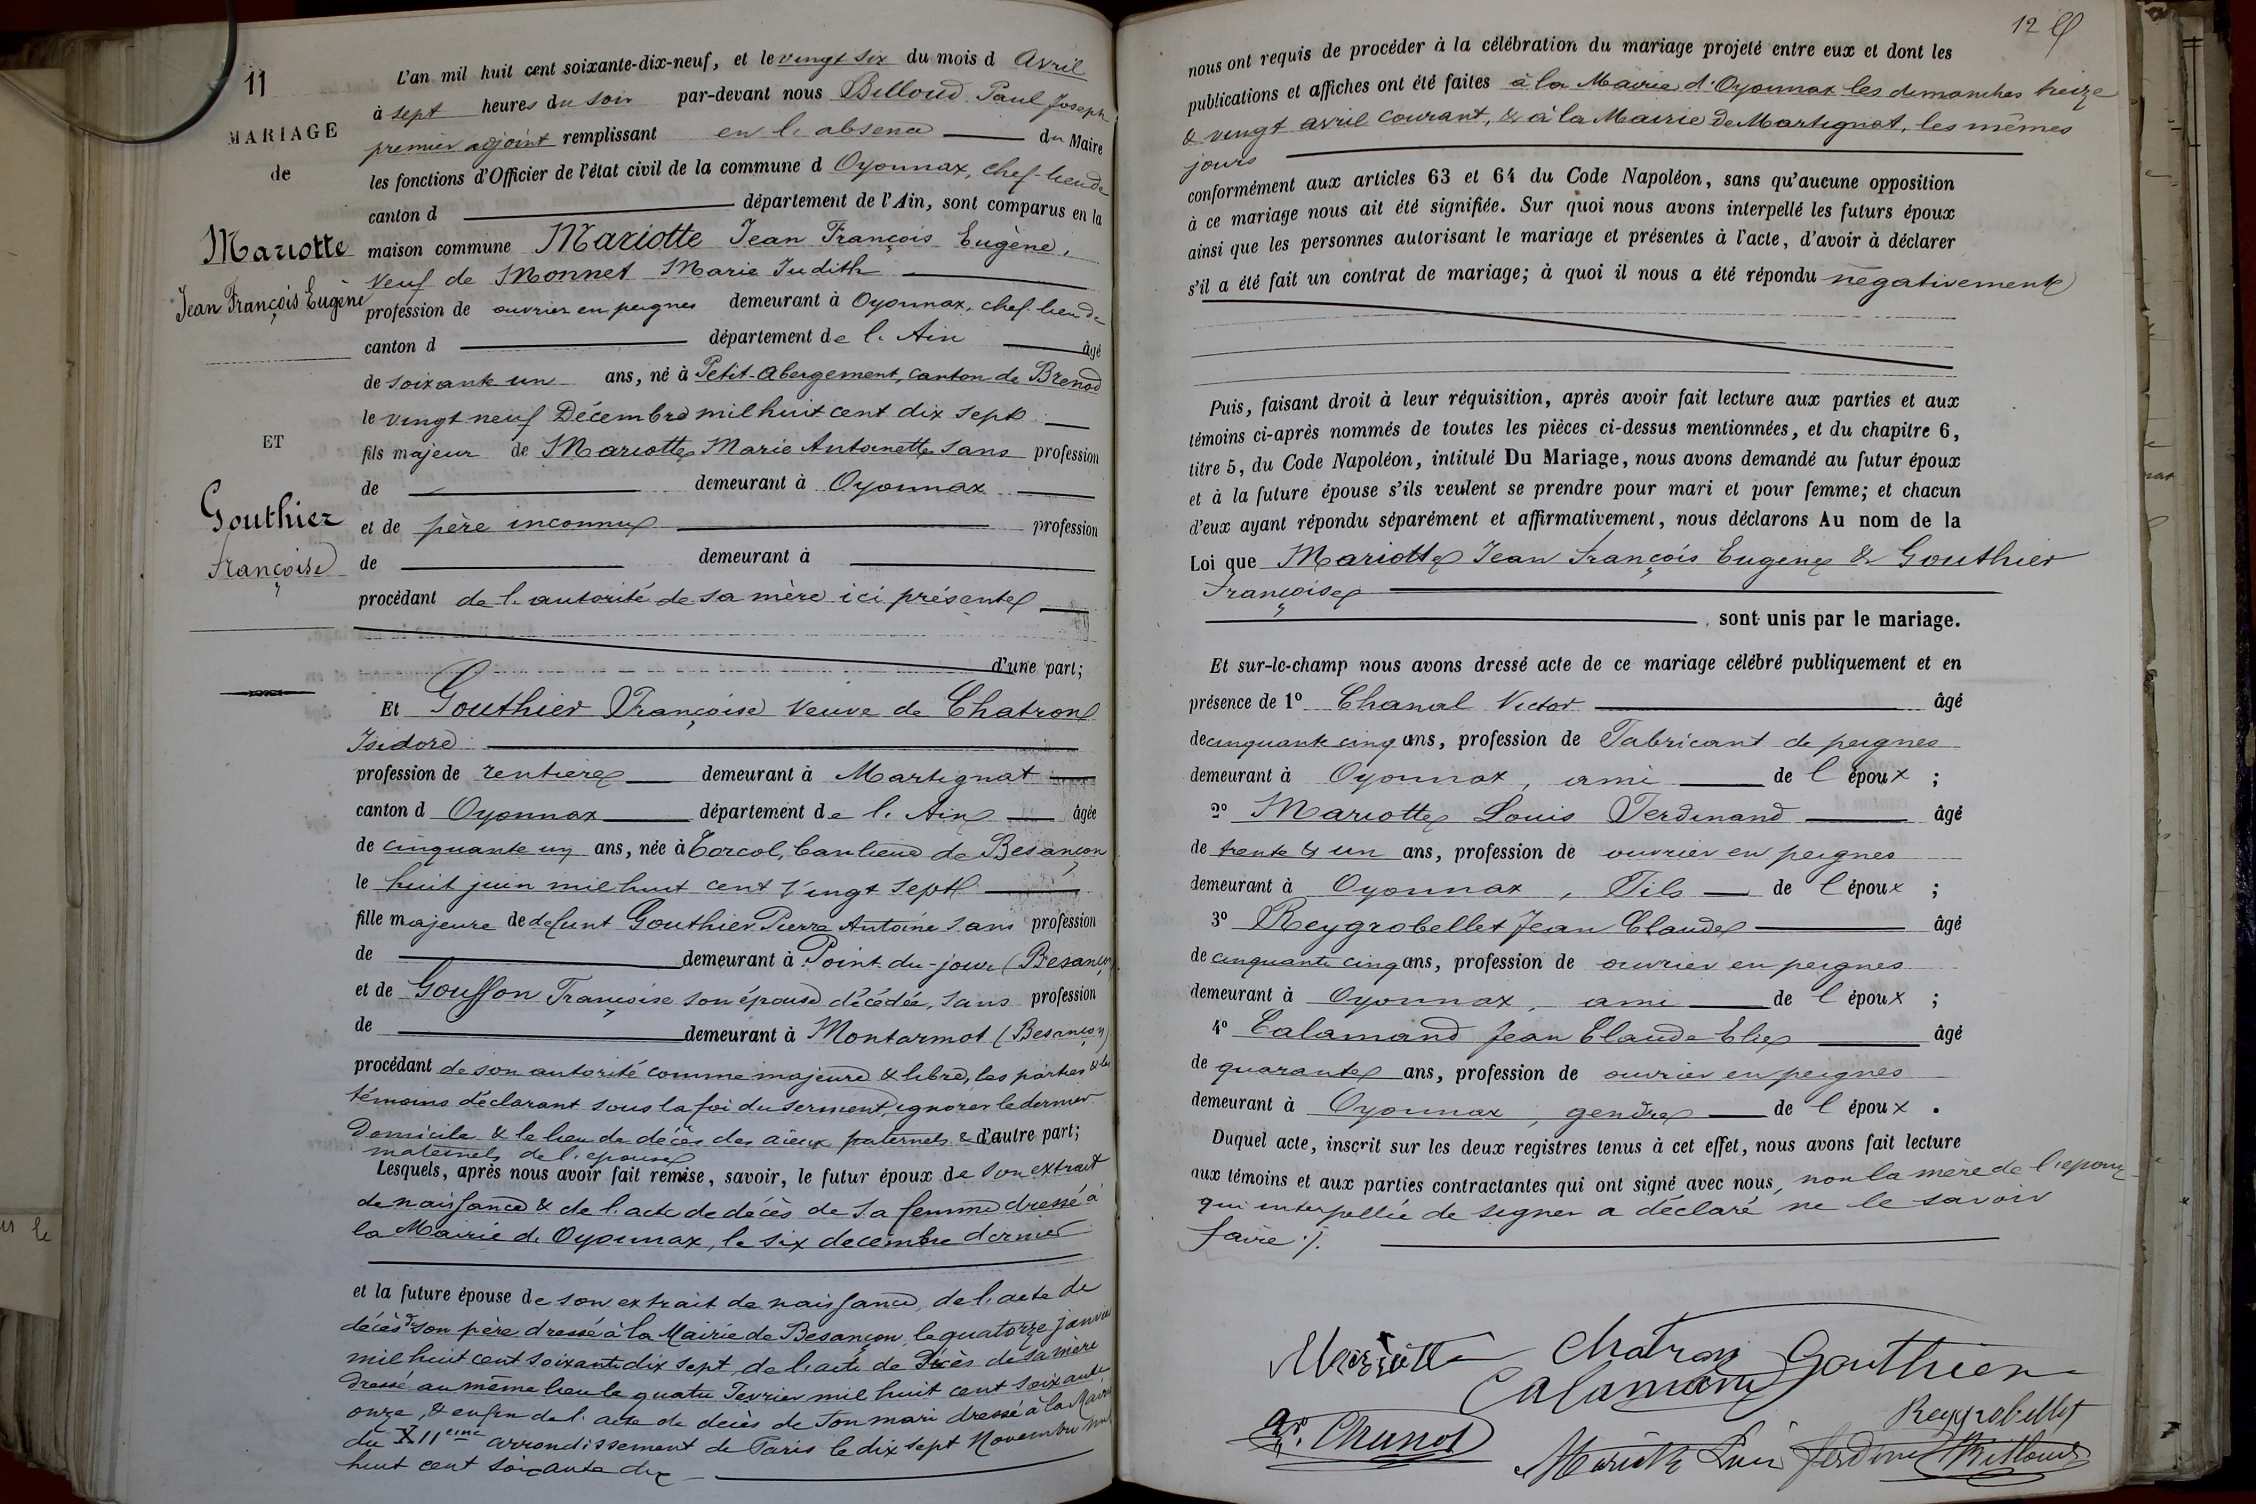 11
MARIAGE
de
Mariotte
Jean François Eugène
ET
Gouthier
Françoise
L'an mil huit cent soixante-dix-neuf, et le vingt six du mois d Avril
à sept heures du soir par-devant nous Billoud Paul Joseph
premier adjoint remplissant en l'absence du Maire
les fonctions d'Officier de l'état civil de la commune d Oyonnax, chef-lieu de
canton d département de l'Ain, sont comparus en la
maison commune Mariotte Jean François Eugène,
Veuf de Monnet Marie Judith
profession de ouvrier en peignes demeurant à Oyonnax, chef-lieu de
canton d département de l'Ain âgé
de soixante un ans, né à Petit-Abergement, canton de Brenod
le vingt neuf Décembre mil huit cent dix sept
fils majeur de Mariotte Marie Antoinette sans profession
de demeurant à Oyonnax
et de père inconnu profession
de demeurant à
procédant de l'autorité de sa mère ici présente
d'une part;
Et Gouthier Françoise Veuve de Chatron
Isidore
profession de rentière demeurant à Martignat
canton d Oyonnax département de l'Ain âgée
de cinquante un ans, née à Torcol, banlieue de Besançon
le huit juin mil huit cent vingt sept
fille majeure de defunt Gouthier Pierre Antoine sans profession
de demeurant à Point-du-jour (Besançon
et de Gouffon Françoise son épouse décédée, sans profession
de demeurant à Montarmot (Besançon)
procédant de son autorité comme majeure & libre, les parties & les
témoins déclarant sous la foi du serment, ignorer le dernier
Domicile & le lieu de décès des aïeux paternels & d'autre part;
maternels de l'épouse
Lesquels, après nous avoir fait remise, savoir, le futur époux de son extrait
de naissance & de l'acte de décès de sa femme dressé à
la Mairie d'Oyonnax, le six decembre dernier
et la future épouse de son extrait de naissance, de l'acte de
décès de son père dressé à la Mairie de Besançon, le quatorze janvier
mil huit cent soixante dix sept, de l'acte de Décès de sa mère
Dressé au même lieu le quatre Fevrier mil huit cent soixante
onze, & enfin de l'acte de décès de son mari dressé à la Mairie
du XII eme arrondissement de Paris le dix sept Novembre mil
huit cent soixante dix
12
nous ont requis de procéder à la célébration du mariage projeté entre eux et dont les
publications et affiches ont été faites à la Mairie d'Oyonnax les dimanches treize
& vingt avril courant, & à la Mairie de Martignat, les mêmes
jours
conformément aux articles 63 et 64 du Code Napoléon, sans qu'aucune opposition
à ce mariage nous ait été signifiée. Sur quoi nous avons interpellé les futurs époux
ainsi que les personnes autorisant le mariage et présentes à l'acte, d'avoir à déclarer
s'il a été fait un contrat de mariage; à quoi il nous a été répondu négativement
Puis, faisant droit à leur réquisition, après avoir fait lecture aux parties et aux
témoins ci-après nommés de toutes les pièces ci-dessus mentionnées, et du chapitre 6,
titre 5, du Code Napoléon, intitulé Du Mariage, nous avons demandé au futur époux
et à la future épouse s'ils veulent se prendre pour mari et pour femme; et chacun
d'eux ayant répondu séparément et affirmativement, nous déclarons Au nom de la
Loi que Mariotte Jean François Eugène & Gouthier
Françoise
sont unis par le mariage.
Et sur-le-champ nous avons dressé acte de ce mariage célébré publiquement et en
présence de 1° Chanal Victor âgé
de cinquante cinq ans, profession de Fabricant de peignes
demeurant à Oyonnax, ami de l'époux;
2° Mariotte Louis Ferdinand âgé
de trente & un ans, profession de ouvrier en peignes
demeurant à Oyonnax, Fils de l'époux;
3° Reygrobellet Jean Claude âgé
de cinquante cinq ans, profession de ouvrier en peignes
demeurant à Oyonnax, ami de l'époux;
4° Calamand Jean Claude Elie âgé
de quarante ans, profession de ouvrier en peignes
demeurant à Oyonnax, gendre de l'époux.
Duquel acte, inscrit sur les deux registres tenus à cet effet, nous avons fait lecture
aux témoins et aux parties contractantes qui ont signé avec nous, non la mère de l'époux
qui interpellée de signer a déclaré ne le savoir
faire ./.
Mariotte Chatron Gouthier
Calamand
Reygrobellet
Mariotte Louis Ferdinand Billoud